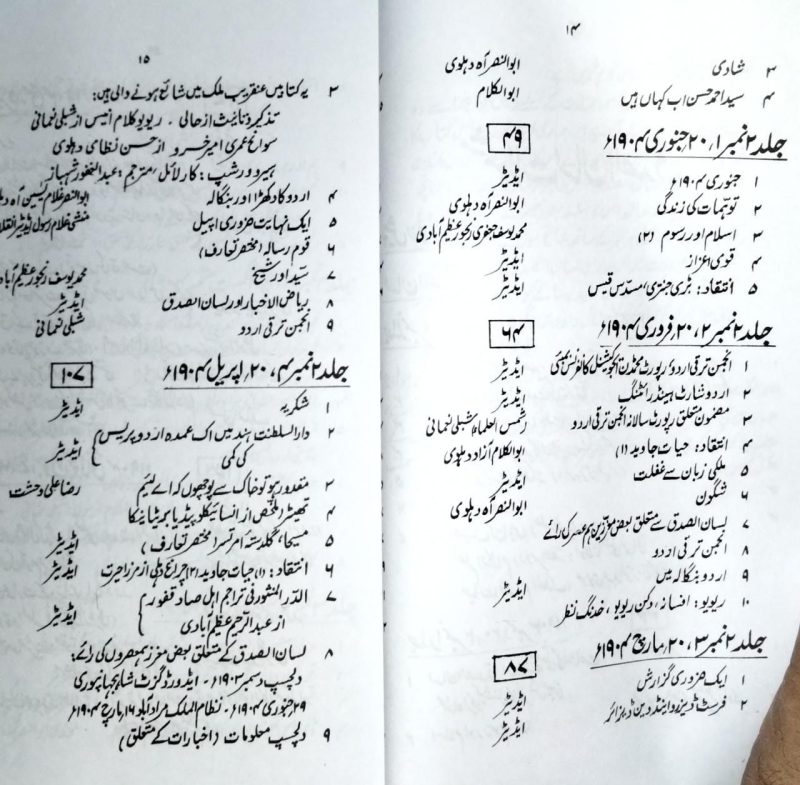 ۱۴
۳ شادی ابوالنصر آہ دہلوی
۴ سید احمد حسن اب کہاں ہیں ابوالکلام
جلد ۲ نمبر ۱، ۲۰ جنوری ۱۹۰۴ء ۴۹
۱ جنوری ۱۹۰۴ء ایڈیٹر
۲ توہمات کی زندگی ابوالنصر آہ دہلوی
۳ اسلام اور رسوم (۲) محمد یوسف جعفری رنجور عظیم آبادی
۴ قومی اعزاز ایڈیٹر
۵ انتقاد: بڑی جنتری، مسدس قیس ایڈیٹر
جلد ۲ نمبر ۲، ۲۰ فروری ۱۹۰۴ء ۶۴
۱ انجمن ترقی اردو / رپورٹ محمڈن ایجوکیشنل کانفرنس بمبئی ایڈیٹر
۲ اردو شارٹ ہینڈ رائٹنگ ایڈیٹر
۳ مضمون متعلق رپورٹ سالانہ انجمن ترقی اردو شمس العلماء شبلی نعمانی
۴ انتقاد: حیات جاوید (۱) ابوالکلام آزاد دہلوی
۵ ملکی زبان سے غفلت ایڈیٹر
۶ شگون ابوالنصر آہ دہلوی
۷ لسان الصدق سے متعلق بعض معززین ہم عصر کی رائے
۸ انجمن ترقی اردو
۹ اردو بنگالہ میں
۱۰ ریویو: افسانہ، دکن ریویو، خدنگ نظر ایڈیٹر
جلد ۲ نمبر ۳، ۲۰ مارچ ۱۹۰۴ء ۸۷
۱ ایک ضروری گزارش ایڈیٹر
۲ فرسٹ ڈیزرو اینڈ دین ڈیزائر ایڈیٹر
۱۵
۳ یہ کتابیں عنقریب ملک میں شائع ہونے والی ہیں:
تذکیر و تانیث از حالی ۔ ریویو کلام انیس از شبلی نعمانی
سوانح عمری امیر خسرو از حسن نظامی دہلوی
ہیرو ورشپ: کارلائل / مترجم: عبدالغفور شہباز
۴ اردو کا دکھڑا اور بنگالہ ابوالنصر غلام یسین آہ دہلوی
۵ ایک نہایت ضروری اپیل منشی غلام رسول ایڈیٹر
۶ قوم رسالہ (مختصر تعارف)
۷ سید اور شیخ محمد یوسف رنجور عظیم آبادی
۸ ریاض الاخبار اور لسان الصدق ایڈیٹر
۹ انجمن ترقی اردو شبلی نعمانی
جلد ۲ نمبر ۴، ۲۰ اپریل ۱۹۰۴ء ۱۰۷
۱ شکریہ ایڈیٹر
۲ دار السلطنت ہند میں اک عمدہ اردو پریس
کی کمی ایڈیٹر
۳ مقدور ہو تو خاک سے پوچھوں کہ اے لئیم رضا علی وحشت
۴ تھیٹر / ملخص از انسائیکلوپیڈیا برٹانیکا
۵ مسیحا، گلدستۂ امرتسر (مختصر تعارف) ایڈیٹر
۶ انتقاد: (۱) حیات جاوید (۲) چراغ دہلی از مرزا حیرت ایڈیٹر
۷ الدر المنثور فی تراجم اہل صادقفور
از عبدالرحیم عظیم آبادی ایڈیٹر
۸ لسان الصدق کے متعلق بعض معزز ہمعصروں کی رائے:
دلچسپ دسمبر ۱۹۰۳ء ۔ ایڈورڈ گزٹ شاہجہانپوری
۲۹ جنوری ۱۹۰۴ء ۔ نظام الملک مرادآباد ۱۶ مارچ ۱۹۰۴ء
۹ دلچسپ معلومات (اخبارات کے متعلق)